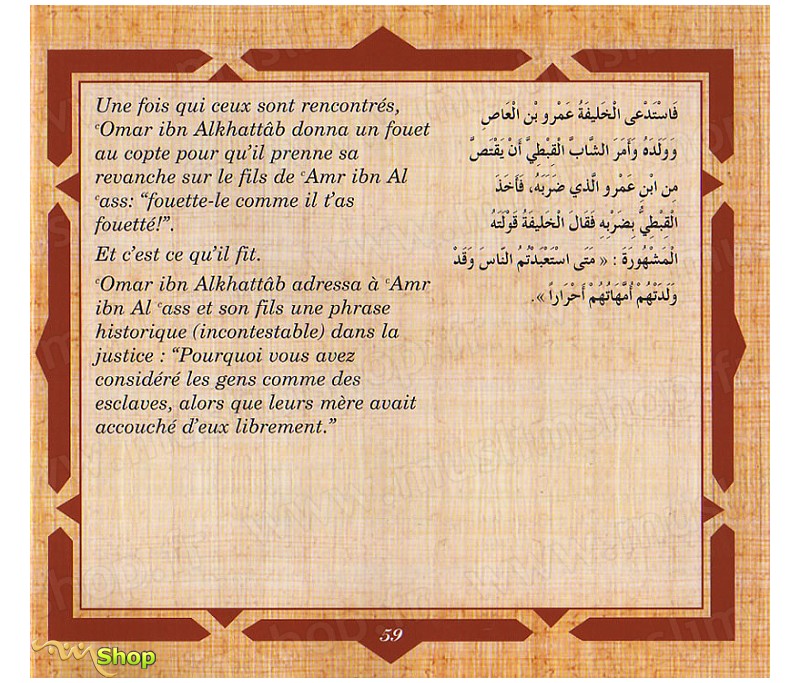 Une fois qui ceux sont rencontrés,
ᶜOmar ibn Alkhattâb donna un fouet
au copte pour qu'il prenne sa
revanche sur le fils de ᶜAmr ibn Al
ᶜass: “fouette-le comme il t'as
fouetté!”.
Et c'est ce qu'il fit.
ᶜOmar ibn Alkhattâb adressa à ᶜAmr
ibn Al ᶜass et son fils une phrase
historique (incontestable) dans la
justice : “Pourquoi vous avez
considéré les gens comme des
esclaves, alors que leurs mère avait
accouché d'eux librement.”
فَاسْتَدْعى الْخَليفَةُ عَمْرو بْن الْعَاصِ
وَوَلَدَهُ وَأَمَرَ الشَّابَّ الْقِبْطِيَّ أَنْ يَقْتَصَّ
مِن ابْنِ عَمْرو الَّذي ضَرَبَهُ، فَأَخَذَ
الْقِبْطِيُّ بِضَرْبِهِ فَقَالَ الْخَليفَةُ قَوْلَتَهُ
الْمَشْهُورَةَ : « مَتَى اسْتَعْبَدْتُمُ النَّاسَ وَقَدْ
وَلَدَتْهُمْ أُمَّهَاتُهُمْ أَحْرَاراً ».
59
Shop